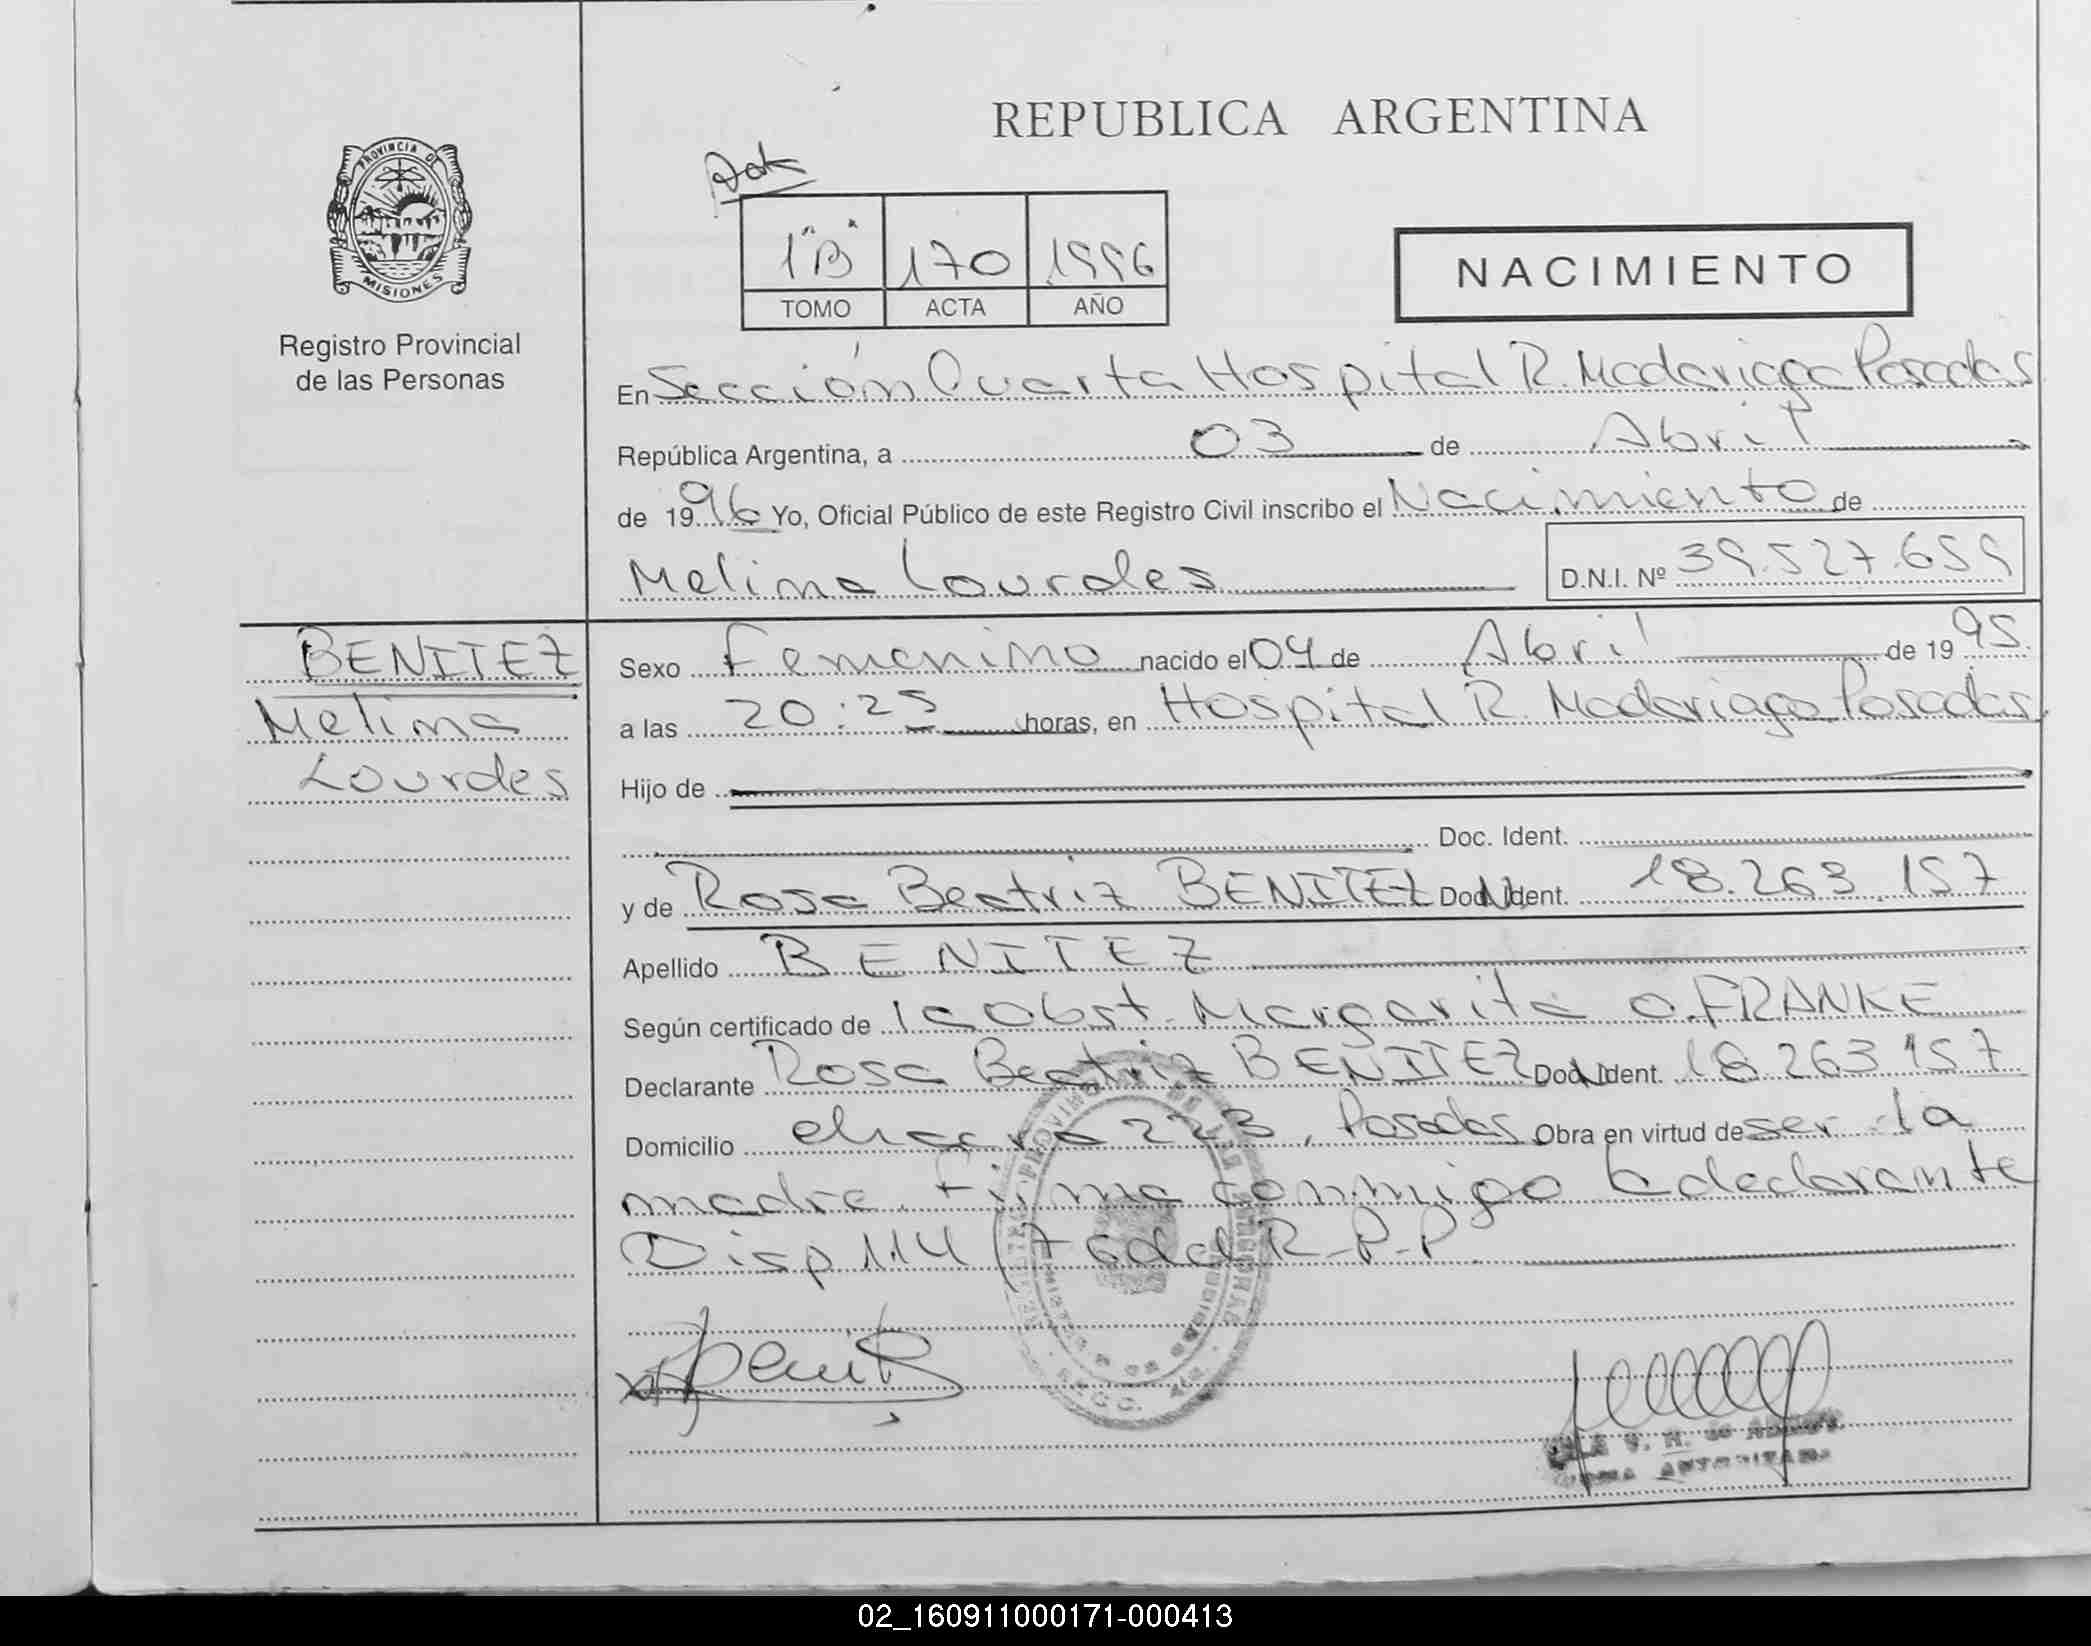 REPUBLICA ARGENTINA
PROVINCIA DE
MISIONES
Registro Provincial
de las Personas
1"B" 170 1996
TOMO ACTA AÑO
NACIMIENTO
En Sección Cuarta Hospital R. Madariaga Posadas
República Argentina, a 03 de Abril
de 1996 Yo, Oficial Público de este Registro Civil inscribo el Nacimiento de
Melina Lourdes D.N.I. Nº 39.527.659
BENITEZ
Melina
Lourdes
Sexo Femenino nacido el 04 de Abril de 1995
a las 20:25 horas, en Hospital R. Madariaga Posadas
Hijo de
Doc. Ident.
y de Rosa Beatriz BENITEZ Doc. Ident. 18.263.157
Apellido BENITEZ
Según certificado de la Obst. Margarita O. FRANKE
Declarante Rosa Beatriz BENITEZ Doc. Ident. 18.263.157
Domicilio chacra 223, Posadas Obra en virtud de ser la
madre. Firma conmigo la declarante
Disp 114/76 del R.P.P.
02_160911000171-000413